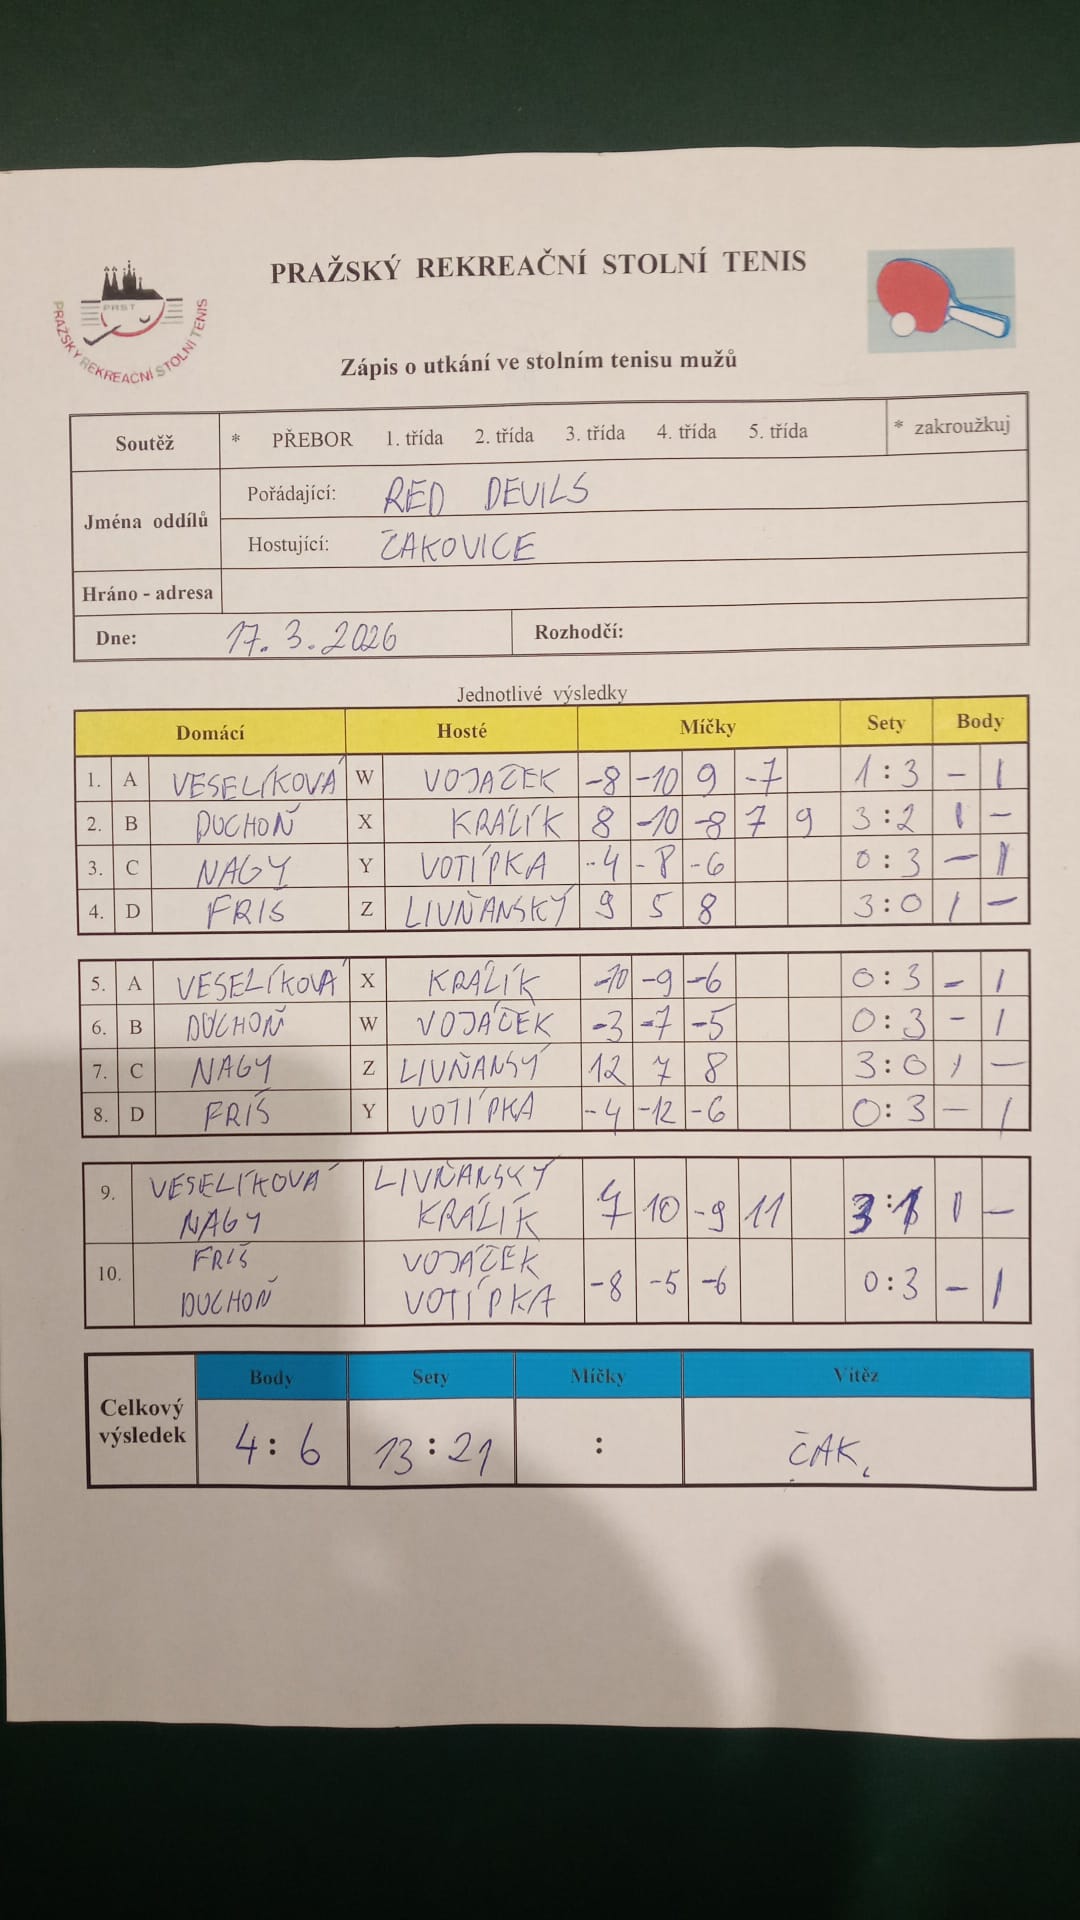 PRAŽSKÝ REKREAČNÍ STOLNÍ TENIS
PRST
PRAŽSKÝ REKREAČNÍ STOLNÍ TENIS
Zápis o utkání ve stolním tenisu mužů
Soutěž * PŘEBOR 1. třída 2. třída 3. třída 4. třída 5. třída * zakroužkuj
Jména oddílů
Pořádající: RED DEVILS
Hostující: ČAKOVICE
Hráno - adresa
Dne: 17. 3. 2026 Rozhodčí:
Jednotlivé výsledky
Domácí Hosté Míčky Sety Body
1. A VESELÍKOVÁ W VOJAČEK -8 -10 9 -7 1 : 3 - 1
2. B DUCHOŇ X KRÁLÍK 8 -10 -8 7 9 3 : 2 1 -
3. C NAGY Y VOTÍPKA -4 -8 -6 0 : 3 - 1
4. D FRIŠ Z LIVŇANSKÝ 9 5 8 3 : 0 1 -
5. A VESELÍKOVÁ X KRÁLÍK -10 -9 -6 0 : 3 - 1
6. B DUCHOŇ W VOJÁČEK -3 -7 -5 0 : 3 - 1
7. C NAGY Z LIVŇANSÝ 12 7 8 3 : 0 1 -
8. D FRIŠ Y VOTÍPKA -4 -12 -6 0 : 3 - 1
9. VESELÍKOVÁ LIVŇANSKÝ
NAGY KRÁLÍK 10 -9 11 3 : 1 1 -
10. FRIŠ VOJÁČEK
DUCHOŇ VOTÍPKA -8 -5 -6 0 : 3 - 1
Celkový výsledek
Body Sety Míčky Vítěz
4 : 6 13 : 21 : ČAK.